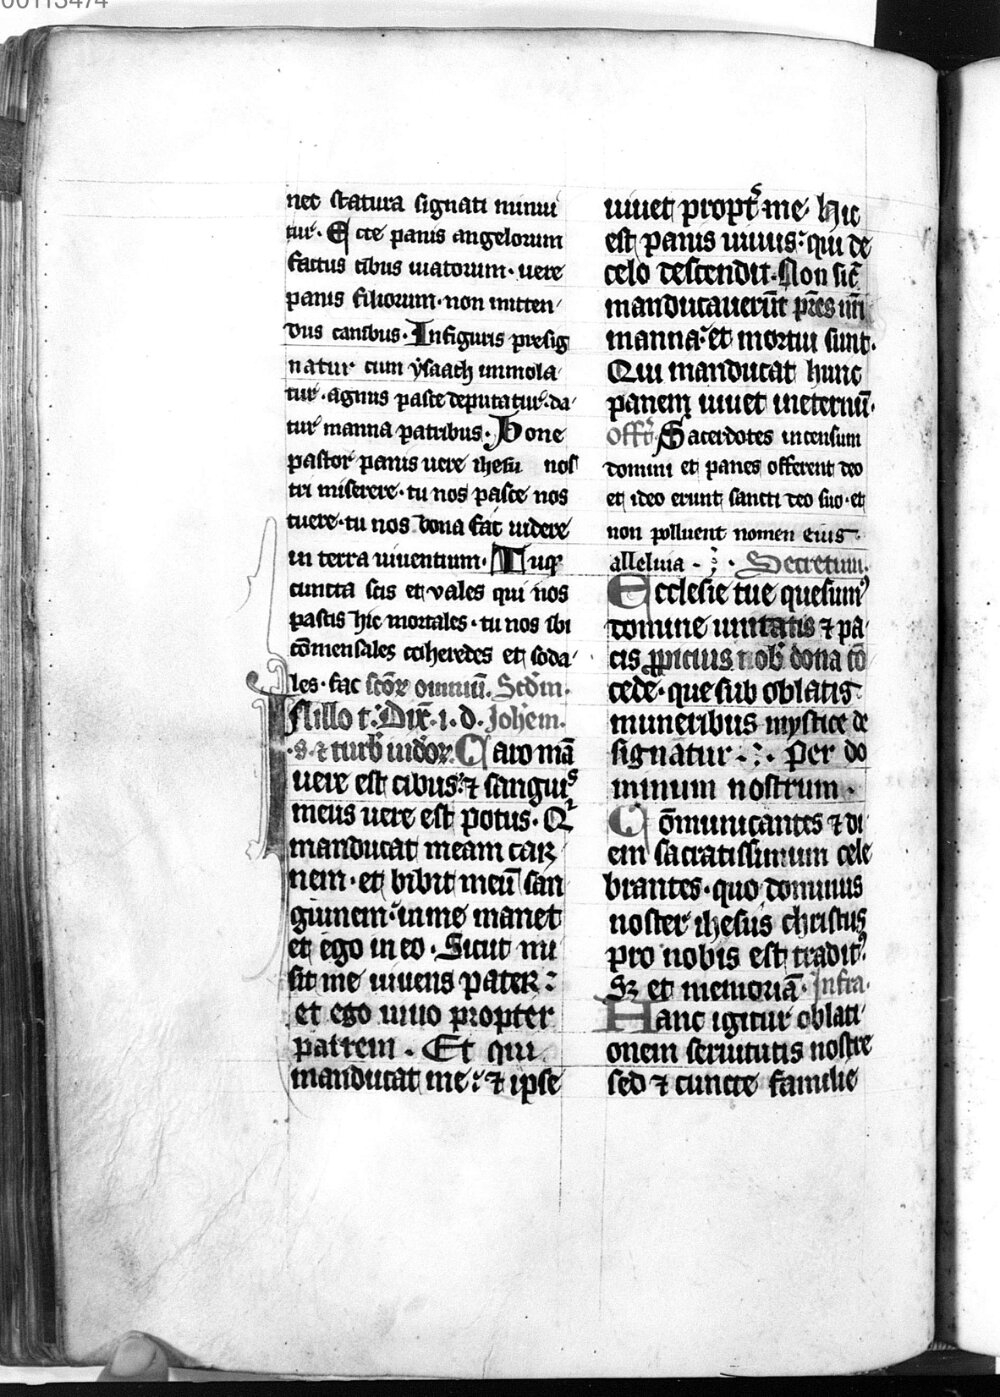 00113474
nec statura signati minui
tur. Ecce panis angelorum
factus cibus uiatorum. uere
panis filiorum. non mitten
dus canibus. In figuris presig
natur cum ysaach immola
tur. agnus pasce deputatur. da
tur manna patribus. Bone
pastor panis uere ihesu nos
tri miserere. tu nos pasce nos
tuere. tu nos bona fac uidere
in terra uiuentium. Tu q
cuncta scis et vales qui nos
pascis hic mortales. tu nos ibi
cōmensales coheredes et soda
les. fac scōr omniū. Scdm.
In illo t. Dix̄. i. d. Johem.
s. ⁊ turb̄ iudeor. Caro mā
uere est cibus: ⁊ sanguis
meus uere est potus. Q
manducat meam car
nem. et bibit meū san
guinem. in me manet
et ego in eo. Sicut mi
sit me uiuens pater:
et ego uiuo propter
patrem. Et qui
manducat me: ⁊ ipse
uiuet propt̄ me. Hic
est panis uiuus: qui de
celo descendit. Non sic̄
manducauerūt p̄res ūri
manna: et mortui sunt.
Qui manducat hunc
panem uiuet ineternū.
Offr̄. Sacerdotes incensum
domini et panes offerent deo
et ideo erunt sancti deo suo. et
non polluent nomen eius.
alleluia Secretum.
Ecclesie tue quesum
domine unitatis ⁊ pa
cis ꝓpicius nob̄ dona cō
cede. que sub oblatis
muneribus mystice de
signatur. Per do
minum nostrum.
Cōmunicantes ⁊ di
em sacratissimum cele
brantes. quo dominus
noster ihesus christus
pro nobis est tradit
Sȝ et memoriā. Infra.
Hanc igitur oblati
onem seruitutis nostre
sed ⁊ cuncte familie